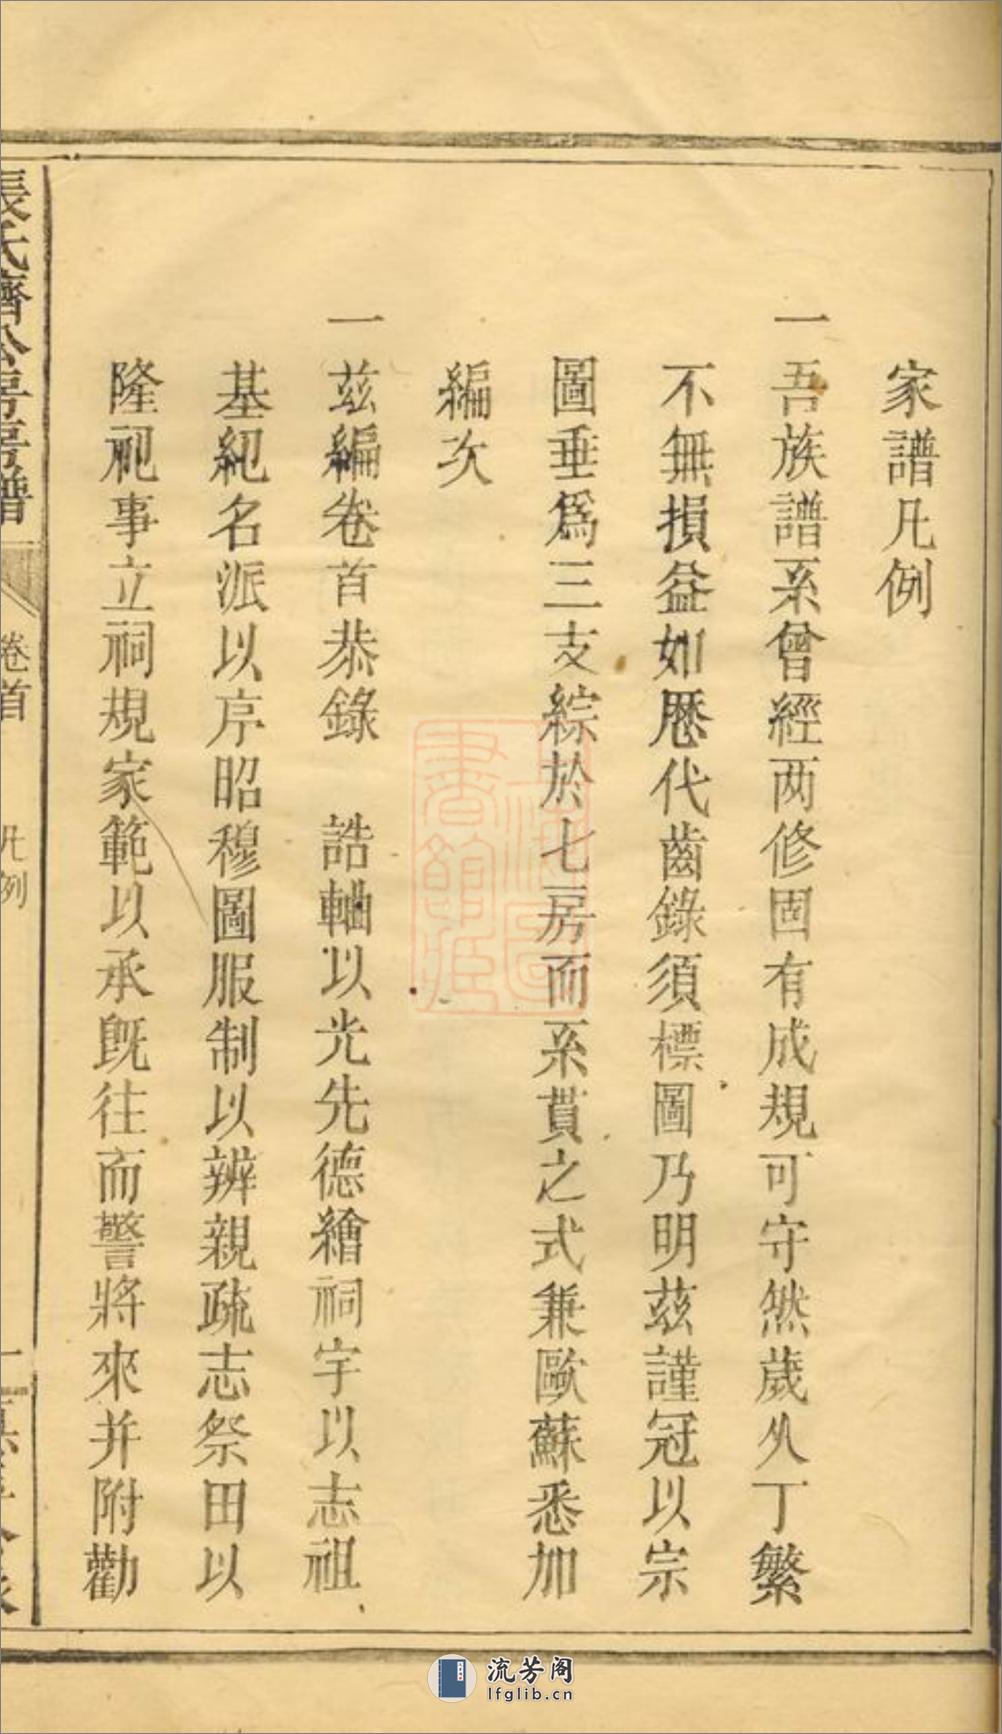 家譜凡例
一吾族譜系曾經两修固有成規可守然歲久丁繁
不無損益如歷代齒錄須標圖乃明茲謹冠以宗
圖垂爲三支綜於七房而系貫之式兼歐蘇悉加
編次
一茲編卷首恭錄　誥軸以光先德繪祠宇以志祖
基紀名派以序昭穆圖服制以辨親疏志祭田以
隆祀事立祠規家範以承旣往而警將來并附勸
張氏濟公房房譜
卷首
凡例
一
流芳阁
lfglib.cn